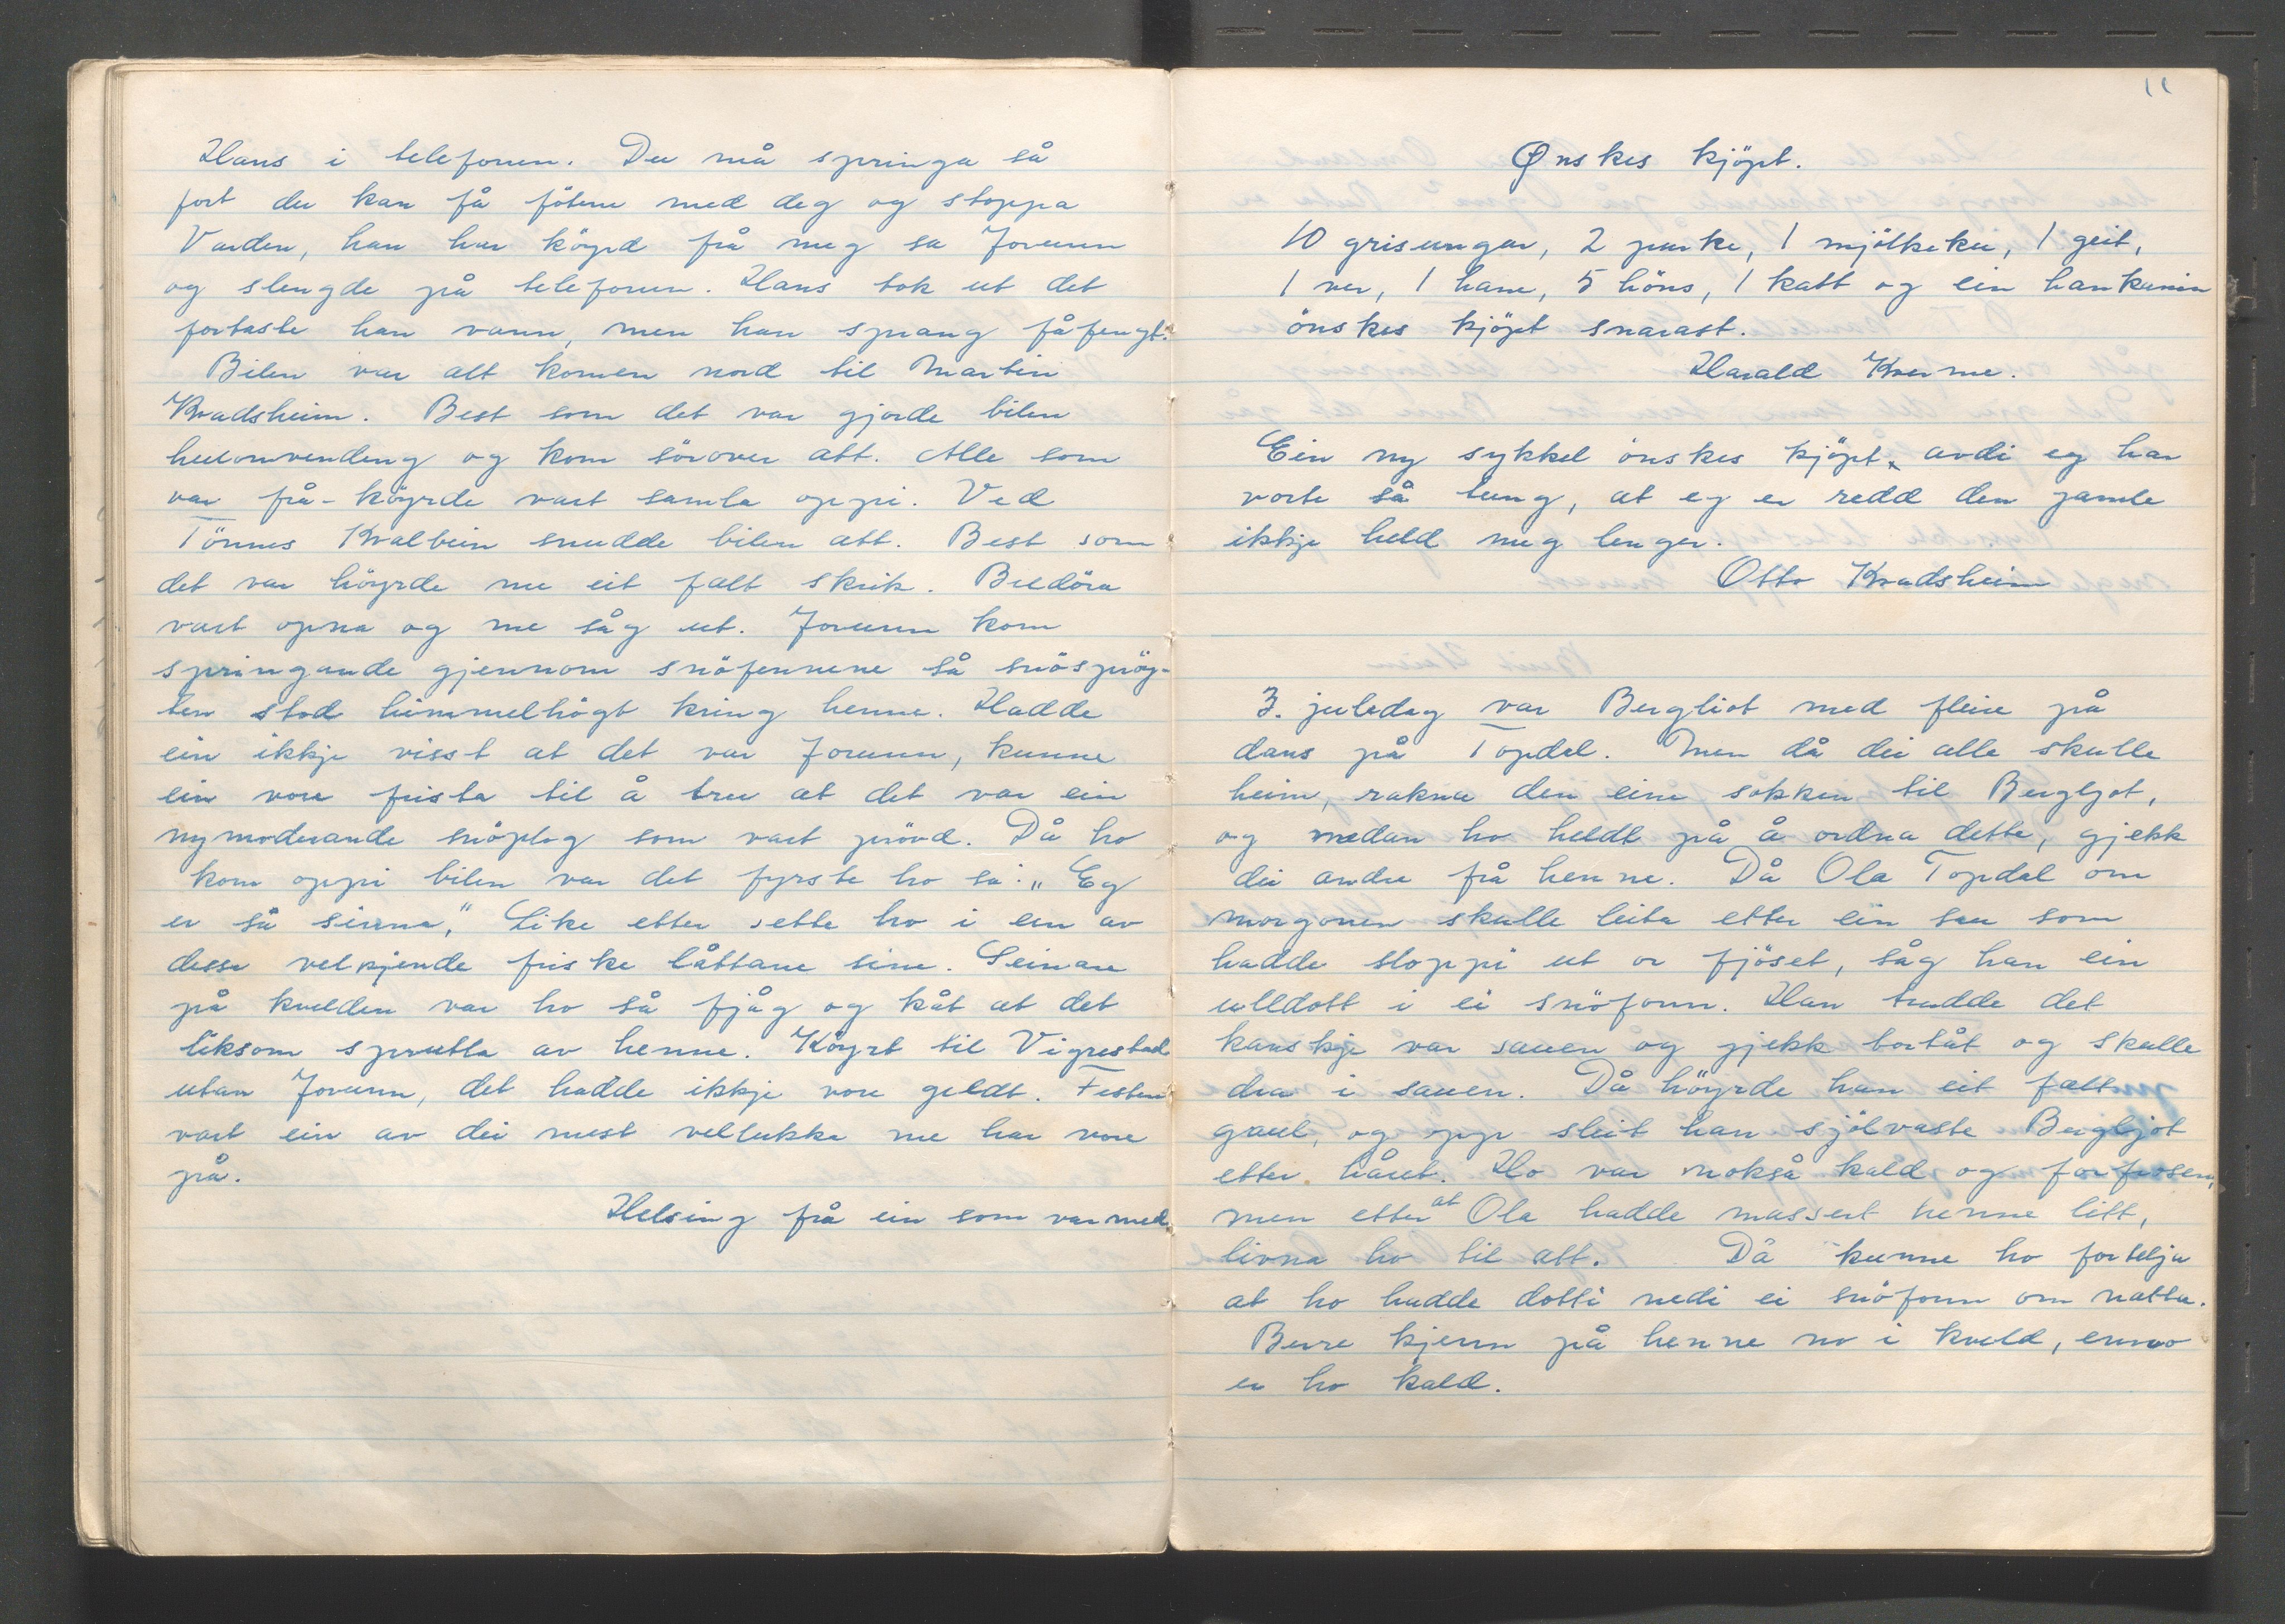 Hans i telefonen. Du må springa så
fort du kan få föterne med deg og stoppa
Varden, han har köyrd frå meg sa Jorunn
og slengde på telefonen. Hans tok ut det
fortaste han vann, men han sprang fåfengt.
Bilen var alt komen nord til Martin
Kvadsheim. Best som det var gjorde bilen
heilomvending og kom sörover att. Alle som
var frå-köyrde vart samla oppi. Ved
Tönnes Kvalbein snudde bilen att. Best som
det var höyrde me eit fælt skrik. Bildöra
vart opna og me såg ut. Jorunn kom
springande gjennom snöfennene så snösprög-
ten stod himmelhögt kring henne. Hadde
ein ikkje visst at det var Jorunn, kunne
ein vore frista til å tru at det var ein
nymoderande snöplog som vart prövd. Då ho
kom oppi bilen var det fyrste ho sa: „Eg
er så sinna," Like etter sette ho i ein av
desse velkjende friske låttane sine. Seinare
på kvelden var ho så fjåg og kåt at det
liksom sprutta av henne. Köyrt til Vigrestad
utan Jorunn, det hadde ikkje vore geldt. Festen
vart ein av dei mest vellukka me har vore
på.
Helsing frå ein som var med
11
Ønskes kjöpt.
10 grisungar, 2 purke, 1 mjölkeku, 1 geit,
1 ver, 1 hane, 5 höns, 1 katt og ein hankanin
önskes kjöpt snarast.
Harald Kverme.
Ein ny sykkel önskes kjöpt, avdi eg har
vorte så tung, at eg er redd den gamle
ikkje held meg lenger.
Otto Kvadsheim
3. juledag var Bergliot med fleire på
dans på Topdal. Men då dei alle skulle
heim, rakna den eine sokken til Bergljot,
og medan ho heldt på å ordna dette, gjekk
dei andre frå henne. Då Ola Topdal om
morgonen skulle leita etter ein sau som
hadde sloppi ut or fjöset, såg han ein
ulldott i ei snöfonn. Han trudde det
kanskje var sauen og gjekk bortåt og skulle
dra i sauen. Då höyrde han eit fælt
gaul, og opp sleit han sjölvaste Bergljot
etter håret. Ho var nokså kald og forfrosen,
men etter at Ola hadde massert henne litt,
livna ho til att. Då kunne ho fortelja
at ho hadde dotti nedi ei snöfonn om natta.
Berre kjenn på henne no i kveld, enno
er ho kald.